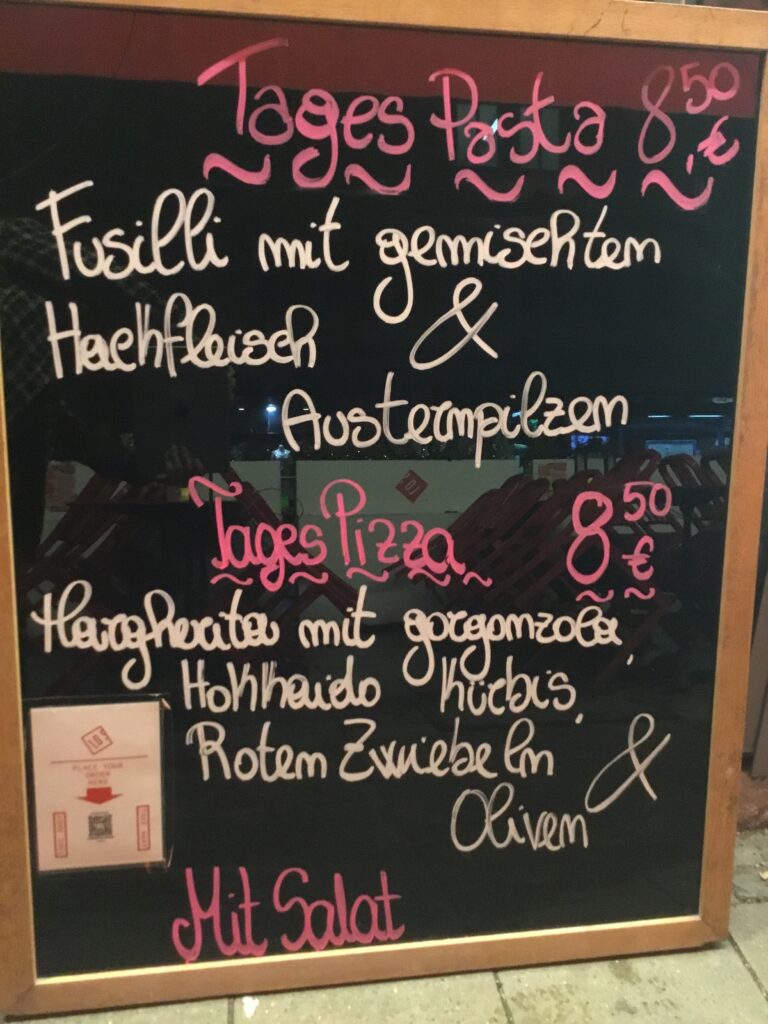 Tages Pasta 8,50 €
Fusilli mit gemischtem
Hackfleisch &
Austernpilzen
Tages Pizza 8,50 €
Margherita mit gorgonzola,
Hokkaido Kürbis,
Roten Zwiebeln &
Oliven
PLACE YOUR
ORDER
HERE
Mit Salat